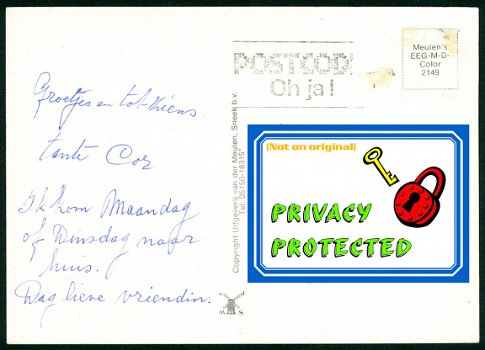 Groetjes en tot ziens
tante Cor
Ik kom Maandag
of Dinsdag naar
huis.
Dag lieve vriendin.
Copyright Uitgeverij van der Meulen, Sneek b.v.
Tel. 05150-18315*
M S
POSTCODE
Oh ja!
Meulen's
EEG-M-D-
Color
2149
[Not on original]
PRIVACY
PROTECTED